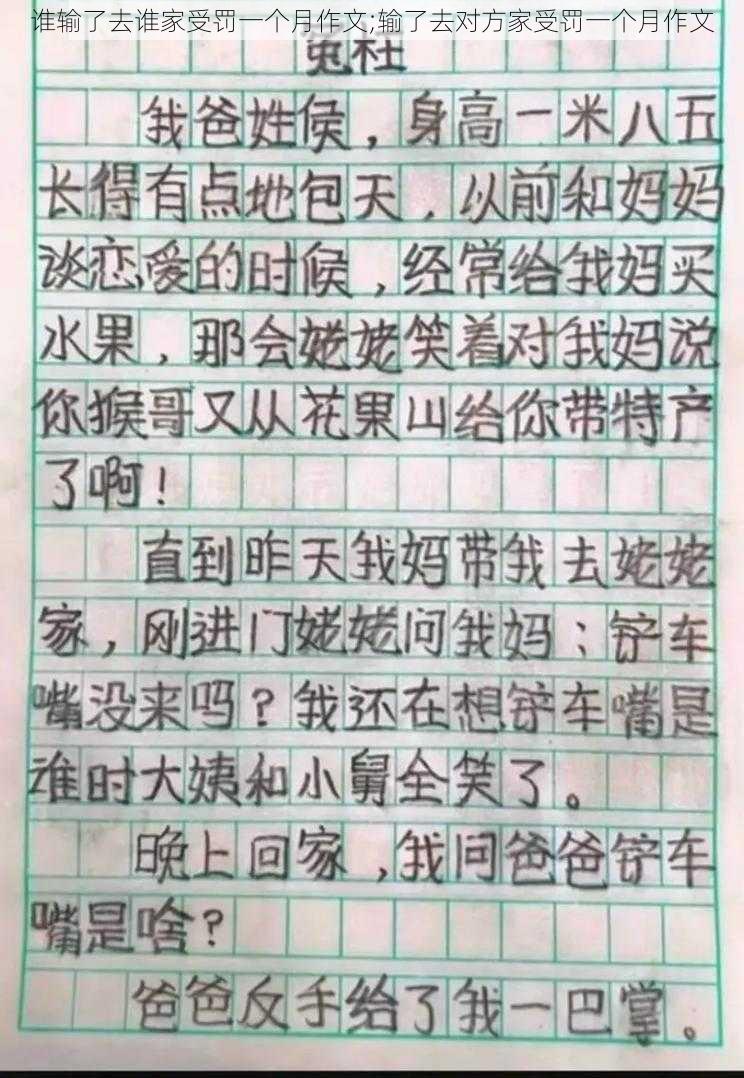 谁输了去谁家受罚一个月作文;输了去对方家受罚一个月作文
冤枉
我爸姓侯，身高一米八五
长得有点地包天，以前和妈妈
谈恋爱的时候，经常给我妈买
水果，那会姥姥笑着对我妈说
你猴哥又从花果山给你带特产
了啊！
直到昨天我妈带我去姥姥
家，刚进门姥姥问我妈：铲车
嘴没来吗？我还在想铲车嘴是
谁时大姨和小舅全笑了。
晚上回家，我问爸爸铲车
嘴是啥？
爸爸反手给了我一巴掌。